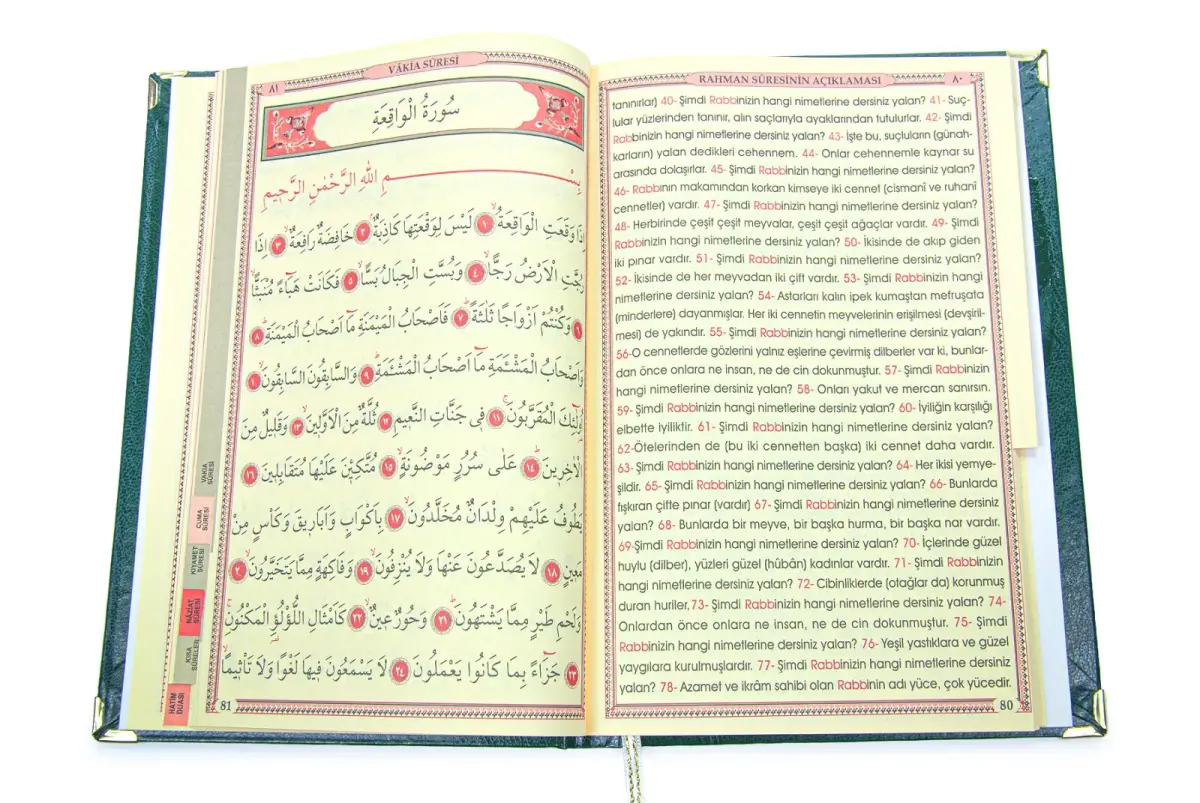 RAHMAN SÛRESİNİN AÇIKLAMASI
٨٠
tanınırlar) 40- Şimdi Rabbinizin hangi nimetlerine dersiniz yalan? 41- Suç-
lular yüzlerinden tanınır, alın saçlarıyla ayaklarından tutulurlar. 42- Şimdi
Rabbinizin hangi nimetlerine dersiniz yalan? 43- İşte bu, suçluların (günah-
karların) yalan dedikleri cehennem. 44- Onlar cehennemle kaynar su
arasında dolaşırlar. 45- Şimdi Rabbinizin hangi nimetlerine dersiniz yalan?
46- Rabbının makamından korkan kimseye iki cennet (cismanî ve ruhanî
cennetler) vardır. 47- Şimdi Rabbinizin hangi nimetlerine dersiniz yalan?
48- Herbirinde çeşit çeşit meyvalar, çeşit çeşit ağaçlar vardır. 49- Şimdi
Rabbinizin hangi nimetlerine dersiniz yalan? 50- İkisinde de akıp giden
iki pınar vardır. 51- Şimdi Rabbinizin hangi nimetlerine dersiniz yalan?
52- İkisinde de her meyvadan iki çift vardır. 53- Şimdi Rabbinizin hangi
nimetlerine dersiniz yalan? 54- Astarları kalın ipek kumaştan mefruşata
(minderlere) dayanmışlar. Her iki cennetin meyvelerinin erişilmesi (devşiril-
mesi) de yakındır. 55- Şimdi Rabbinizin hangi nimetlerine dersiniz yalan?
56-O cennetlerde gözlerini yalnız eşlerine çevirmiş dilberler var ki, bunlar-
dan önce onlara ne insan, ne de cin dokunmuştur. 57- Şimdi Rabbinizin
hangi nimetlerine dersiniz yalan? 58- Onları yakut ve mercan sanırsın.
59- Şimdi Rabbinizin hangi nimetlerine dersiniz yalan? 60- İyiliğin karşılığı
elbette iyiliktir. 61- Şimdi Rabbinizin hangi nimetlerine dersiniz yalan?
62-Ötelerinden de (bu iki cennetten başka) iki cennet daha vardır.
63- Şimdi Rabbinizin hangi nimetlerine dersiniz yalan? 64- Her ikisi yemye-
şildir. 65- Şimdi Rabbinizin hangi nimetlerine dersiniz yalan? 66- Bunlarda
fışkıran çifte pınar (vardır) 67- Şimdi Rabbinizin hangi nimetlerine dersiniz
yalan? 68- Bunlarda bir meyve, bir başka hurma, bir başka nar vardır.
69-Şimdi Rabbinizin hangi nimetlerine dersiniz yalan? 70- İçlerinde güzel
huylu (dilber), yüzleri güzel (hûbân) kadınlar vardır. 71- Şimdi Rabbinizin
hangi nimetlerine dersiniz yalan? 72- Cibinliklerde (otağlar da) korunmuş
duran huriler, 73- Şimdi Rabbinizin hangi nimetlerine dersiniz yalan? 74-
Onlardan önce onlara ne insan, ne de cin dokunmuştur. 75- Şimdi
Rabbinizin hangi nimetlerine dersiniz yalan? 76- Yeşil yastıklara ve güzel
yaygılara kurulmuşlardır. 77- Şimdi Rabbinizin hangi nimetlerine dersiniz
yalan? 78- Azamet ve ikrâm sahibi olan Rabbinin adı yüce, çok yücedir.
80
VÂKİA SÛRESİ
٨١
سُورَةُ الْوَاقِعَةِ
بِسْمِ اللّٰهِ الرَّحْمٰنِ الرَّحٖيمِ
اِذَا وَقَعَتِ الْوَاقِعَةُۙ ١ لَيْسَ لِوَقْعَتِهَا كَاذِبَةٌۢ ٢ خَافِضَةٌ رَافِعَةٌۙ ٣ اِذَا
رُجَّتِ الْاَرْضُ رَجًّاۙ ٤ وَبُسَّتِ الْجِبَالُ بَسًّاۙ ٥ فَكَانَتْ هَبَٓاءً مُنْبَثًّاۙ
٦ وَكُنْتُمْ اَزْوَاجًا ثَلٰثَةًؕ ٧ فَاَصْحَابُ الْمَيْمَنَةِ مَٓا اَصْحَابُ الْمَيْمَنَةِؕ ٨
وَاَصْحَابُ الْمَشْـَٔمَةِ مَٓا اَصْحَابُ الْمَشْـَٔمَةِؕ ٩ وَالسَّابِقُونَ السَّابِقُونَۙ ١٠
اُو۬لٰٓئِكَ الْمُقَرَّبُونَۚ ١١ فٖى جَنَّاتِ النَّعٖيمِ ١٢ ثُلَّةٌ مِنَ الْاَوَّلٖينَۙ ١٣ وَقَلٖيلٌ مِنَ
الْاٰخِرٖينَؕ ١٤ عَلٰى سُرُرٍ مَوْضُونَةٍۙ ١٥ مُتَّكِـٖٔينَ عَلَيْهَا مُتَقَابِلٖينَ ١٦
يَطُوفُ عَلَيْهِمْ وِلْدَانٌ مُخَلَّدُونَۙ ١٧ بِاَكْوَابٍ وَاَبَارٖيقَ وَكَاْسٍ مِنْ
مَعٖينٍۙ ١٨ لَا يُصَدَّعُونَ عَنْهَا وَلَا يُنْزِفُونَۙ ١٩ وَفَاكِهَةٍ مِمَّا يَتَخَيَّرُونَۙ ٢٠
وَلَحْمِ طَيْرٍ مِمَّا يَشْتَهُونَؕ ٢١ وَحُورٌ عٖينٌۙ ٢٢ كَاَمْثَالِ اللُّؤْلُؤِ الْمَكْنُونِۚ
٢٣ جَزَٓاءً بِمَا كَانُوا يَعْمَلُونَ ٢٤ لَا يَسْمَعُونَ فٖيهَا لَغْوًا وَلَا تَاْثٖيمًاۙ
81
VAKIA
SÛRESİ
CUMA
SÛRESİ
KIYAMET
SÛRESİ
NAZİAT
SÛRESİ
KISA
SÛRELER
HATİM
DUASI